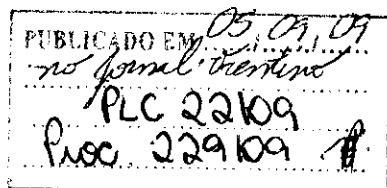 PUBLICADO EM 05/09/09
no jornal
PLC 22/09
Proc. 229/09